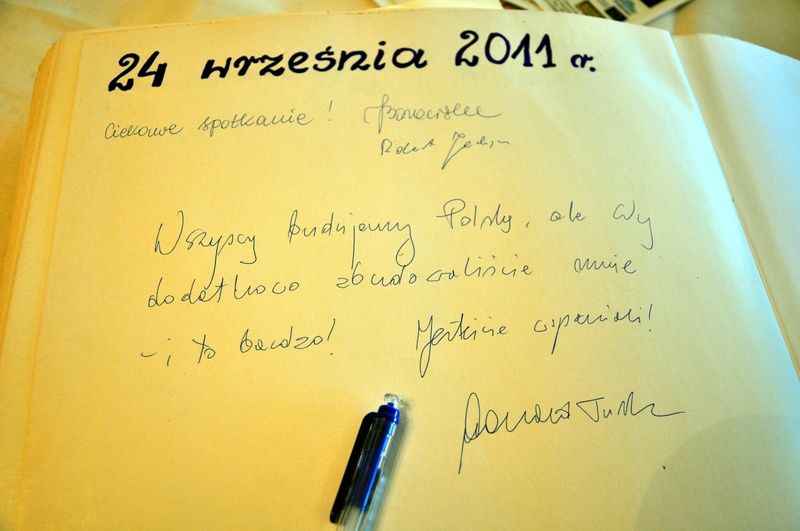 24 września 2011 r.
Ciekawe spotkanie!
Robert
Wszyscy budujemy Polskę, ale Wy
dodatkowo zbudowaliście mnie
- i to bardzo! Jesteście wspaniali!
Donald Tusk